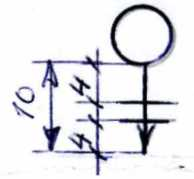 10
4
4